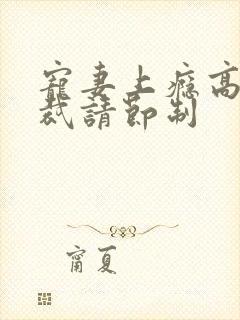 寵妻上癮高
裁請節制
甯夏